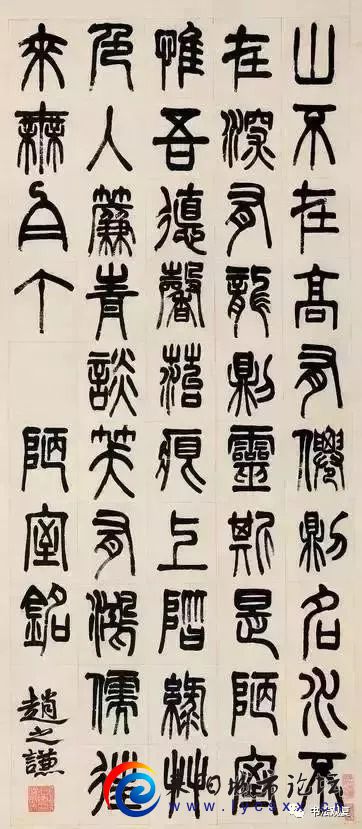 山不在高有僊則名水不
在深有龍則靈斯是陋室
惟吾德馨苔痕上階綠艸
色人簾青談笑有鴻儒往
來無白丁
陋室銘
趙之謙
耒阳城市论坛